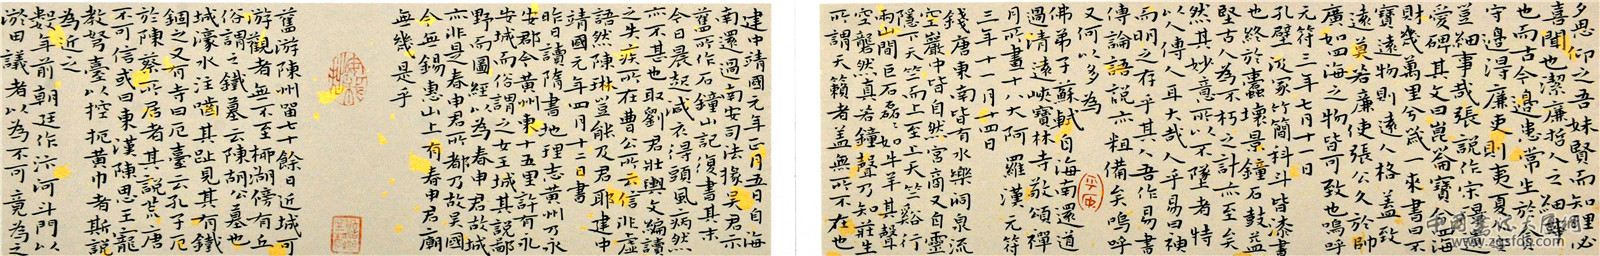 多思仰之吾妹賢而知理必
喜聞也潔廉哲人之細事
也而古今邊患常生於貪
守邊得廉吏則夷夏
豈細事哉張說作宋璟遺
愛碑其文曰崑崙寶西海
財幾萬里分歲一來書曰不
寶遠物則遠人格蓋致
遠莫若廉使張公久於帥
廣如四海之物皆可致也嗚呼
元符三年七月十日
孔壁汲冢竹簡科斗皆漆書
也終於蠹壞景鐘石鼓益
堅古人為不朽之計亦至矣
然其妙意所以不墜者特
以人傳人耳大哉人乎易曰神
而明之存乎其人吾作易書
傳論語說亦粗備矣嗚呼
又何以多為
佛弟子蘇軾自海南還道
過清遠峽寶林寺敬頌禪
月所畫十八大阿羅漢元符
三年十一月十四日
錢唐東南皆有水樂洞泉流
空巖中皆自然宮商又自靈
隱下天竺而上至上天竺谿行
兩山間巨石磊磊如牛羊其聲
空礱然真若鐘聲乃知莊生
所謂天籟者蓋無所不在也
建中靖國元年正月五日自海
南還過南安司法掾吳君示
舊所作石鐘山記復書其末
今日晨起減衣得頭風病然
亦不甚也取劉君壯輿文編讀
之失疾所在曹公所云信非虛
語然陳琳豈能及君耶建中
靖國元年四月十二日書
昨日讀隋書地理志黃州乃永
安郡今黃州東十五里許有永
安城而俗謂之女王城其說鄙
野而圖經以為春申君故城
亦非是春申君所都乃故吳國
今無錫惠山上有春申君廟
庶幾是乎
舊游陳州留七十餘日近城可
游觀者無不至柳湖傍有丘
俗謂之鐵墓云陳胡公墓也
城濠水注嚙其趾見其有鐵
錮之又有寺曰厄臺云孔子厄
於陳蔡所居者其說荒唐
不可信或曰東漢陳思王寵
教弩臺以控扼黃巾者斯說
為近之
數年前朝廷作汴河斗門以
淤田議者以為不可竟為之